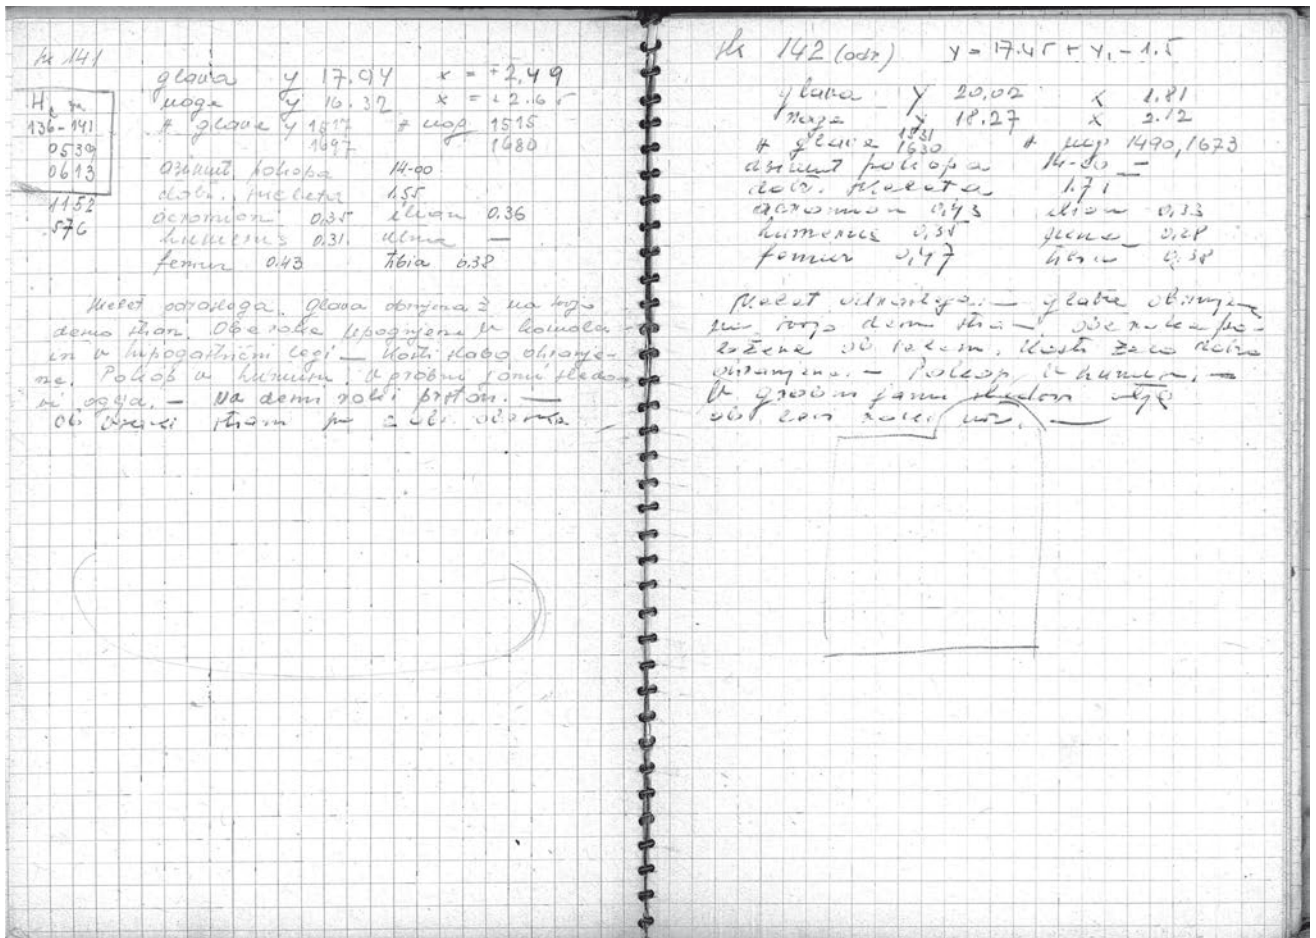 141
glava y 17.94 x = +2.49
noge y 16.32 x = +2.65
H za
136-141
0539
0613
1152
576
# glave y 1517 # nog 1515
1697 1680
azimut pokopa 14-00
dolž. skeleta 1.55
acromion 0.35 ilion 0.36
humerus 0.31. ulna —
femur 0.43 tibia 0.38
skelet odraslega. glava obrnjena ž na svojo
desno stran. Obe roke upognjene v komolcu
in v hipogastrični legi — Kosti slabo ohranje-
ne. Pokop v humusu. v grobni jami sledo
vi ognja. — Na desni roki prstan. —
ob strani
142 (odr) y = 17.45 + y, - 1.5
glava y 20.02 x 1.81
noge y 18.27 x 2.12
# glave 1531 # nog 1490, 1673
1630
azimut pokopa 14-00 —
dolž. skeleta 1.71
acromion 0,43 ilion 0,33
humerus 0,35 0,28
femur 0,47 tibia 0,38
skelet odraslega. — glava obrnjena
na svojo desno stran — obe roke po-
ložene ob telesu. Kosti zelo dobro
ohranjene. — Pokop v humusu. —
V grobni jami sledovi ognja
ob roki nož. —